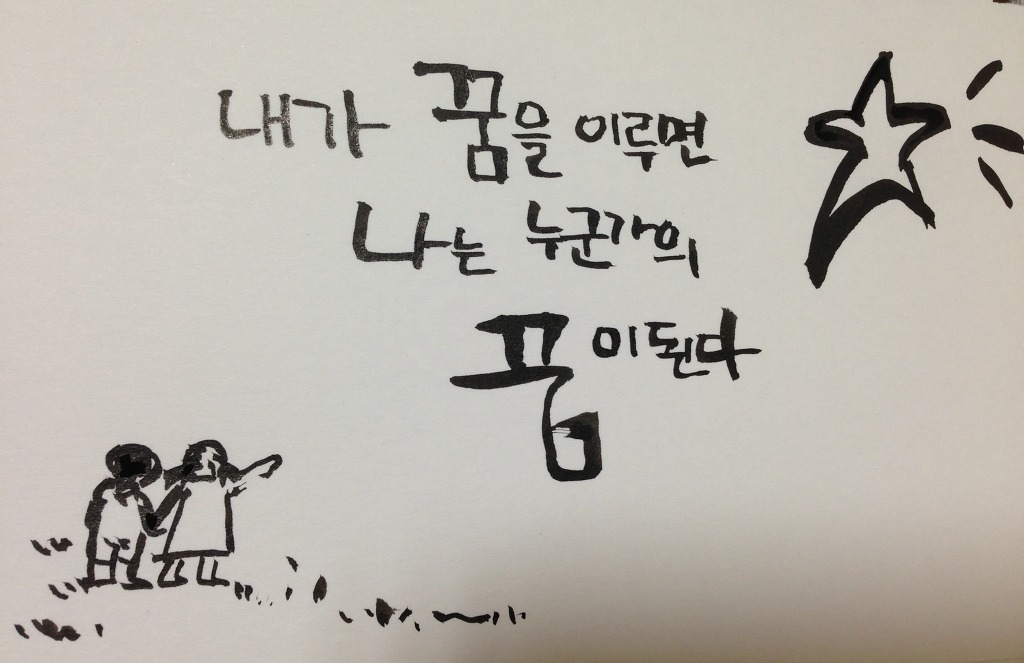 내가 꿈을 이루면
나는 누군가의
꿈이된다